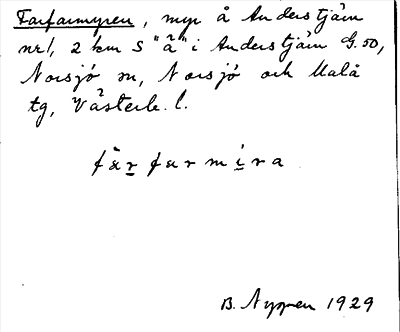 Farfarmyren, myr å Anderstjärn
nr 1, 2 km S "ä" i Anderstjärn G.50,
Norsjö sn, Norsjö och Malå
tg, Västerb. l.
fàr farmira
B. Nygren 1929